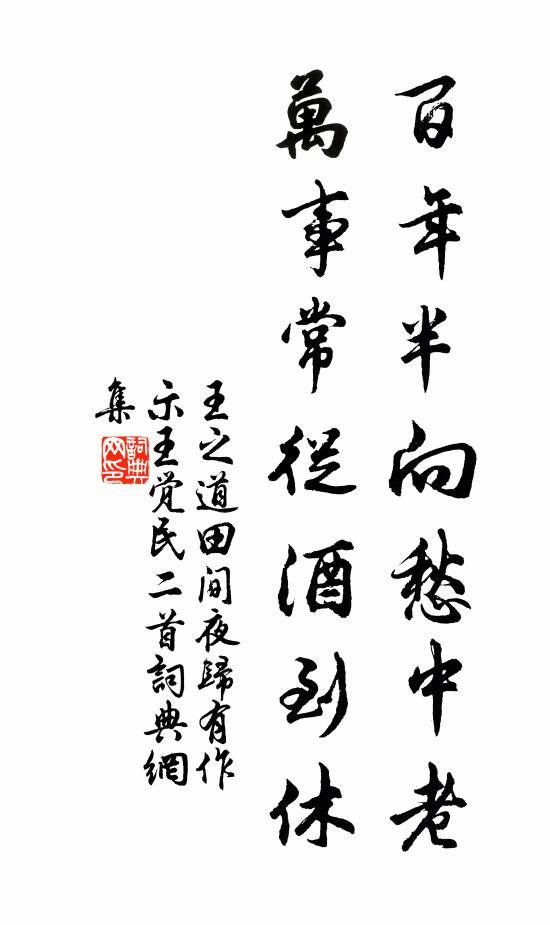 百年半向愁中老
萬事常從酒到休
王之道田間夜歸有作
示王覺民二首詞典網
集
詞典
网印